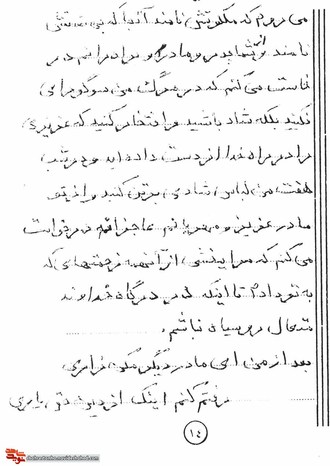 می روم که ملکوتش نامند آنجا که بی
نامند و از شما پدر و مادر و برادرانم در
خاست می کنم که در مرگ من سوگواری
نکنید بلکه شاد باشید و افتخار کنید که عزیزی
را در راه خدا از دست داده اید و در شب
هفت من لباس شادی برتن کنید و از تو
مادر عزیز و مهربانم عاجزانه درخواست
می کنم که مرا ببخشی از آنهمه زحمتهای که
به تو دادم تا اینکه در درگاه خداوند
متعال روسیاه نباشم.
بعد از من ای مادر دیگر مکن زاری
رفتم کنم اینک از دین تو یاری
١٤